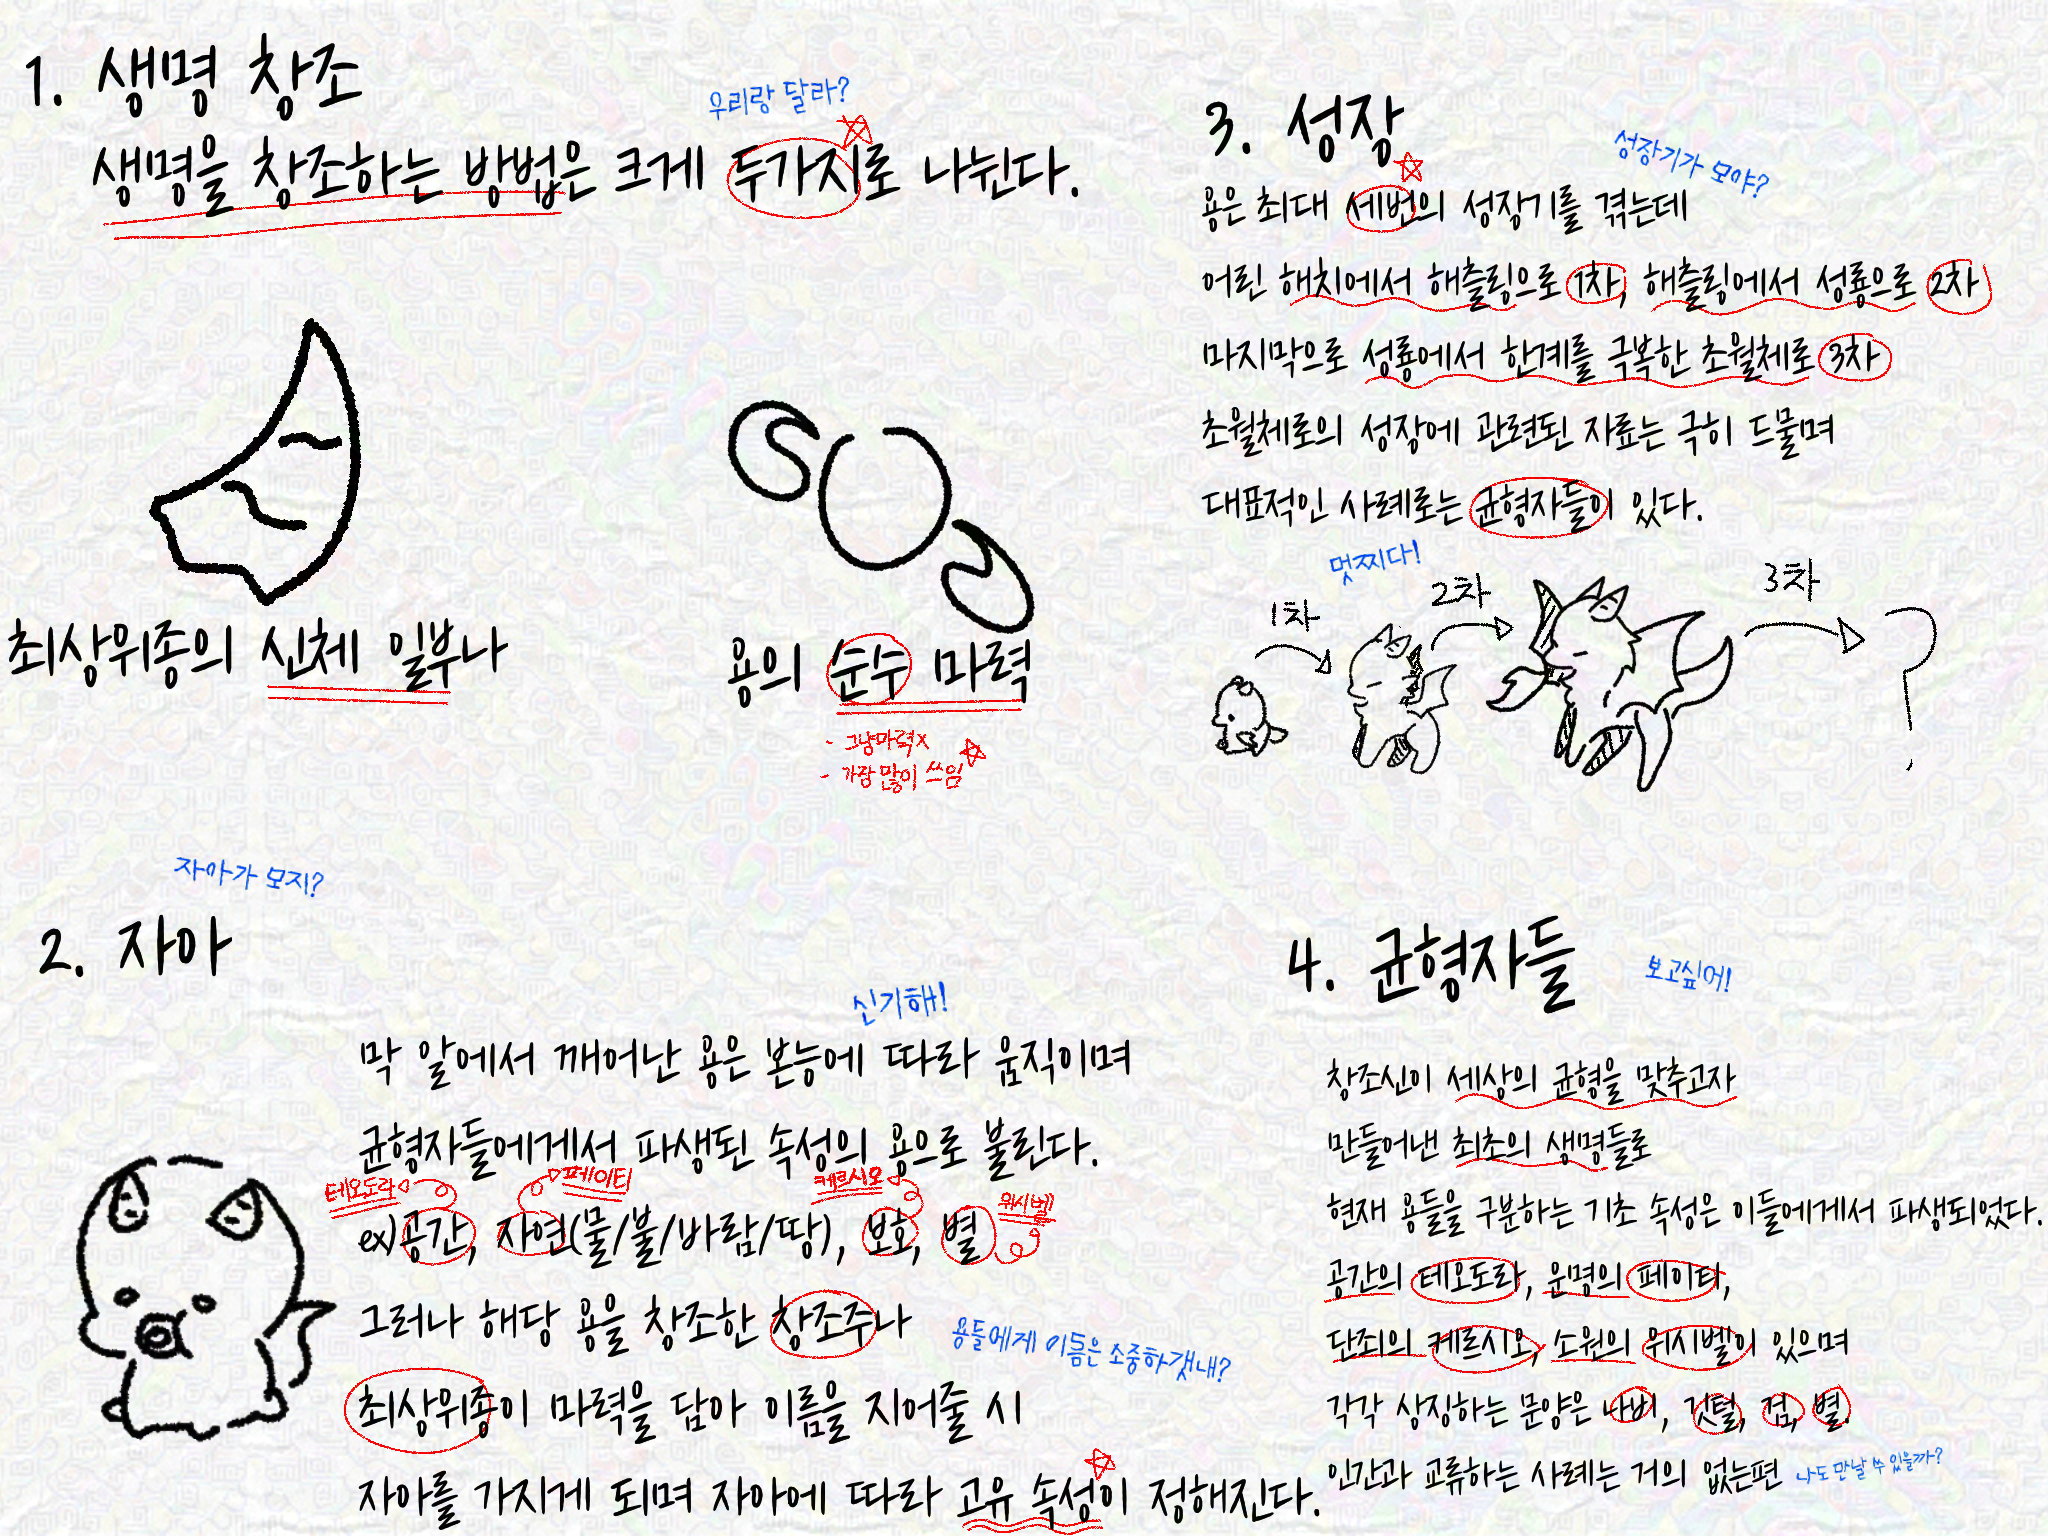 1. 생명 창조
우리랑 달라?
생명을 창조하는 방법은 크게 두가지로 나뉜다.
최상위종의 신체 일부나
용의 순수 마력
- 그냥마력x
- 가장 많이 쓰임
자아가 모지?
2. 자아
신기해!
막 알에서 깨어난 용은 본능에 따라 움직이며
균형자들에게서 파생된 속성의 용으로 불린다.
테오도라 페이터 케르시오 위시벨
ex)공간, 자연(물/불/바람/땅), 보호, 별
그러나 해당 용을 창조한 창조주나
용들에게 이름은 소중하갯내?
최상위종이 마력을 담아 이름을 지어줄 시
자아를 가지게 되며 자아에 따라 고유 속성이 정해진다.
3. 성장
성장기가 모야?
용은 최대 세번의 성장기를 겪는데
어린 해치에서 해츨링으로 1차, 해츨링에서 성룡으로 2차
마지막으로 성룡에서 한계를 극복한 초월체로 3차
초월체로의 성장에 관련된 자료는 극히 드물며
대표적인 사례로는 균형자들이 있다.
멋찌다!
1차 2차 3차
?
4. 균형자들
보고싶어!
창조신이 세상의 균형을 맞추고자
만들어낸 최초의 생명들로
현재 용들을 구분하는 기초 속성은 이들에게서 파생되었다.
공간의 테오도라, 운명의 페이타,
단죄의 케르시오, 소원의 위시벨이 있으며
각각 상징하는 문양은 나비, 깃털, 검, 별.
인간과 교류하는 사례는 거의 없는편
나도 만날 쑤 있을까?